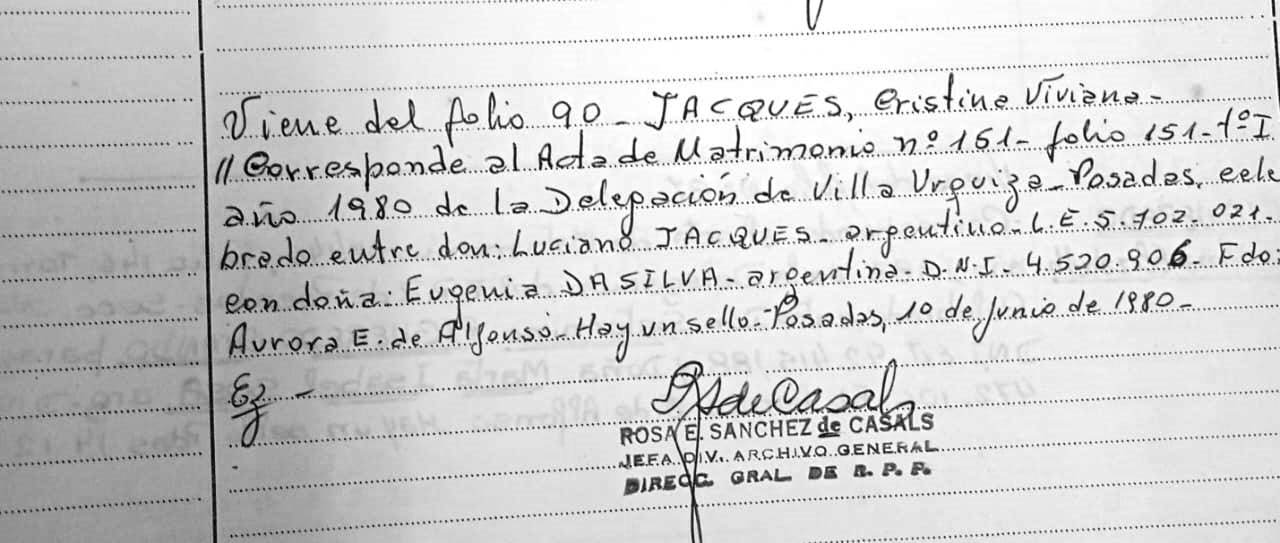 Viene del folio 90 - JACQUES, Cristina Viviana -
// Corresponde al Acta de Matrimonio nº 151 - folio 151 - tº I
año 1980 de la Delegación de Villa Urquiza - Posadas, cele
brado entre don: Luciano JACQUES - argentino - L.E. 5.702.021 -
con doña: Eugenia DA SILVA - argentina - D.N.I - 4.520.906 - Fdo:
Aurora E. de Alfonso - Hay un sello - Posadas, 10 de Junio de 1980 -
ROSA E. SANCHEZ de CASALS
JEFA DIV. ARCHIVO GENERAL
DIRECC. GRAL. DE R. P. P.